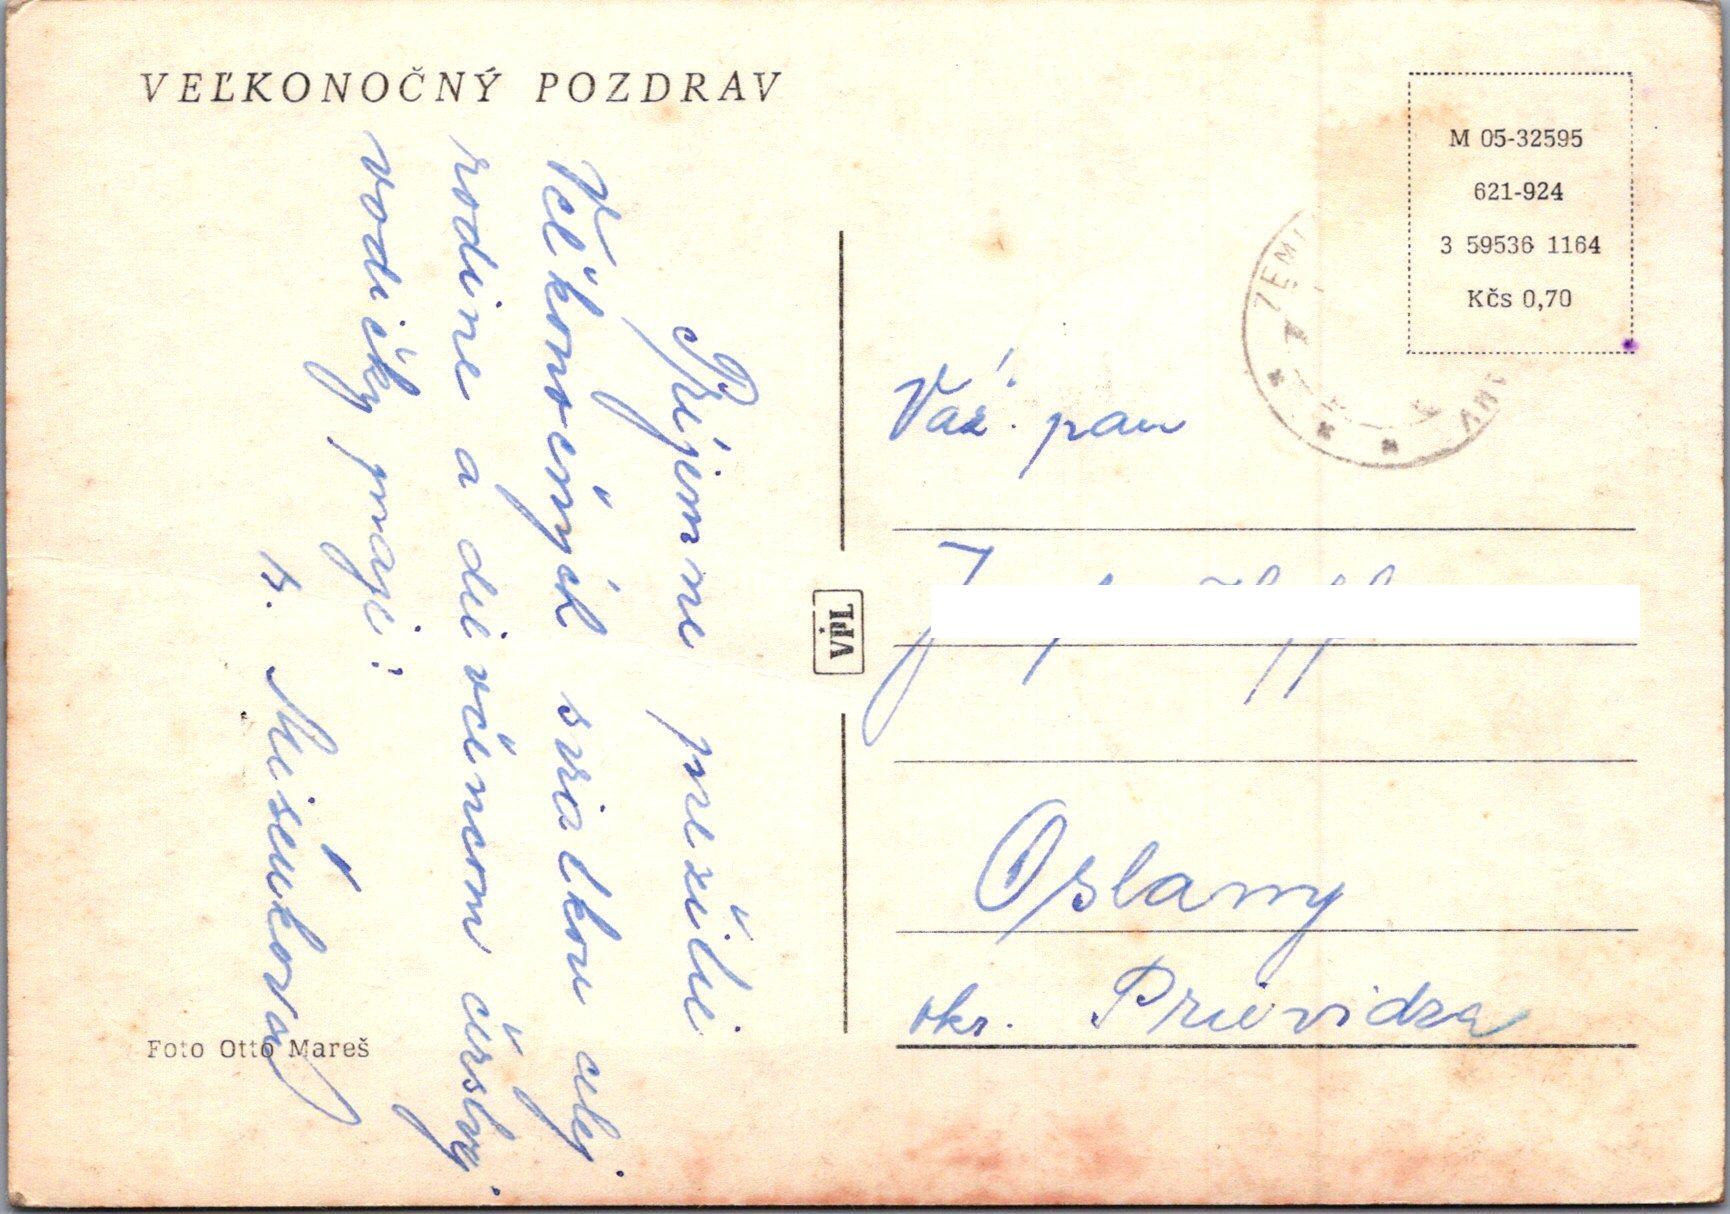 VEĽKONOČNÝ POZDRAV
Príjemne prežitie
Veľkonočných sviatkov celej
rodine a dievčencom čerstvej
vodičky praje:
Foto Otto Mareš
VPL
M 05-32595
621-924
3 59536 1164
Kčs 0,70
Váž. pan
Oslany
okr. Prievidza